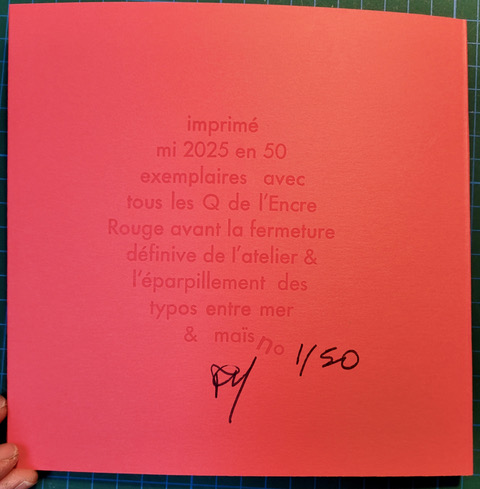 imprimé
mi 2025 en 50
exemplaires avec
tous les Q de l'Encre
Rouge avant la fermeture
défini​ve de l'atelier &
l'éparpillement des
typos entre mer
& maïs
no 1/50